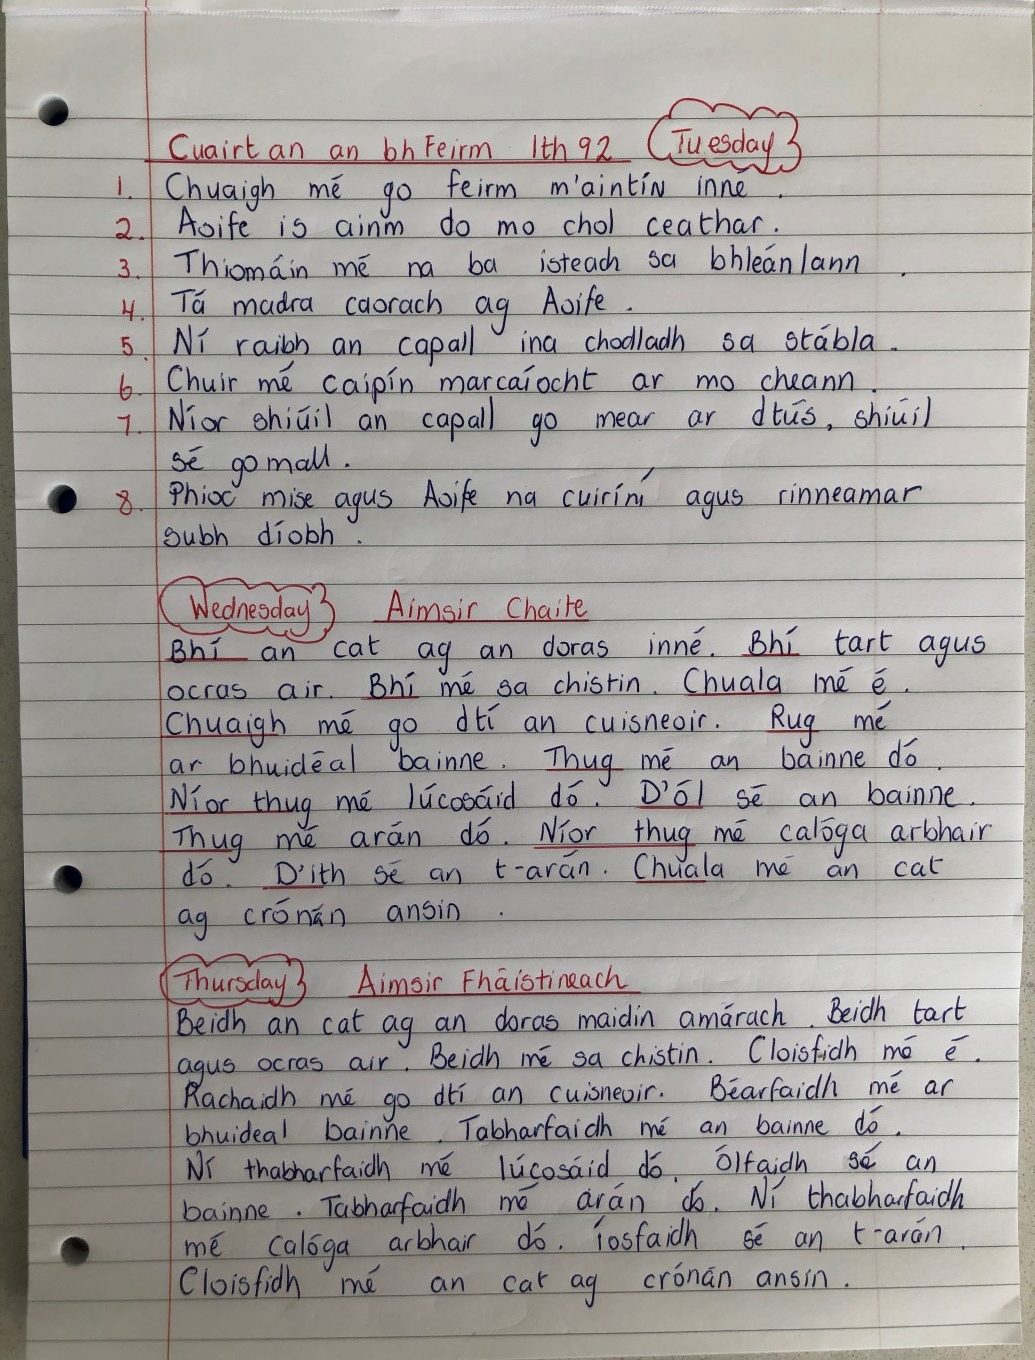 Cuairt an an bhFeirm lth 92 Tuesday
1. Chuaigh mé go feirm m'aintín inné.
2. Aoife is ainm do mo chol ceathar.
3. Thiomáin mé na ba isteach sa bhleánlann.
4. Tá madra caorach ag Aoife.
5. Ní raibh an capall ina chodladh sa stábla.
6. Chuir mé caipín marcaíocht ar mo cheann.
7. Níor shiúil an capall go mear ar dtús, shiúil
sé go mall.
8. Phioc mise agus Aoife na cuiríní agus rinneamar
subh díobh.
Wednesday Aimsir Chaite
Bhí an cat ag an doras inné. Bhí tart agus
ocras air. Bhí mé sa chistin. Chuala mé é.
Chuaigh mé go dtí an cuisneoir. Rug mé
ar bhuidéal bainne. Thug mé an bainne dó.
Níor thug mé lúcosáid dó. D'ól sé an bainne.
Thug mé arán dó. Níor thug mé calóga arbhair
dó. D'ith sé an t-arán. Chuala mé an cat
ag crónán ansin.
Thursday Aimsir Fháistineach
Beidh an cat ag an doras maidin amárach. Beidh tart
agus ocras air. Beidh mé sa chistin. Cloisfidh mé é.
Rachaidh mé go dtí an cuisneoir. Béarfaidh mé ar
bhuideal bainne. Tabharfaidh mé an bainne dó.
Ní thabharfaidh mé lúcosáid dó. Ólfaidh sé an
bainne. Tabharfaidh mé arán dó. Ní thabharfaidh
mé calóga arbhair dó. Íosfaidh sé an t-arán.
Cloisfidh mé an cat ag crónán ansin.